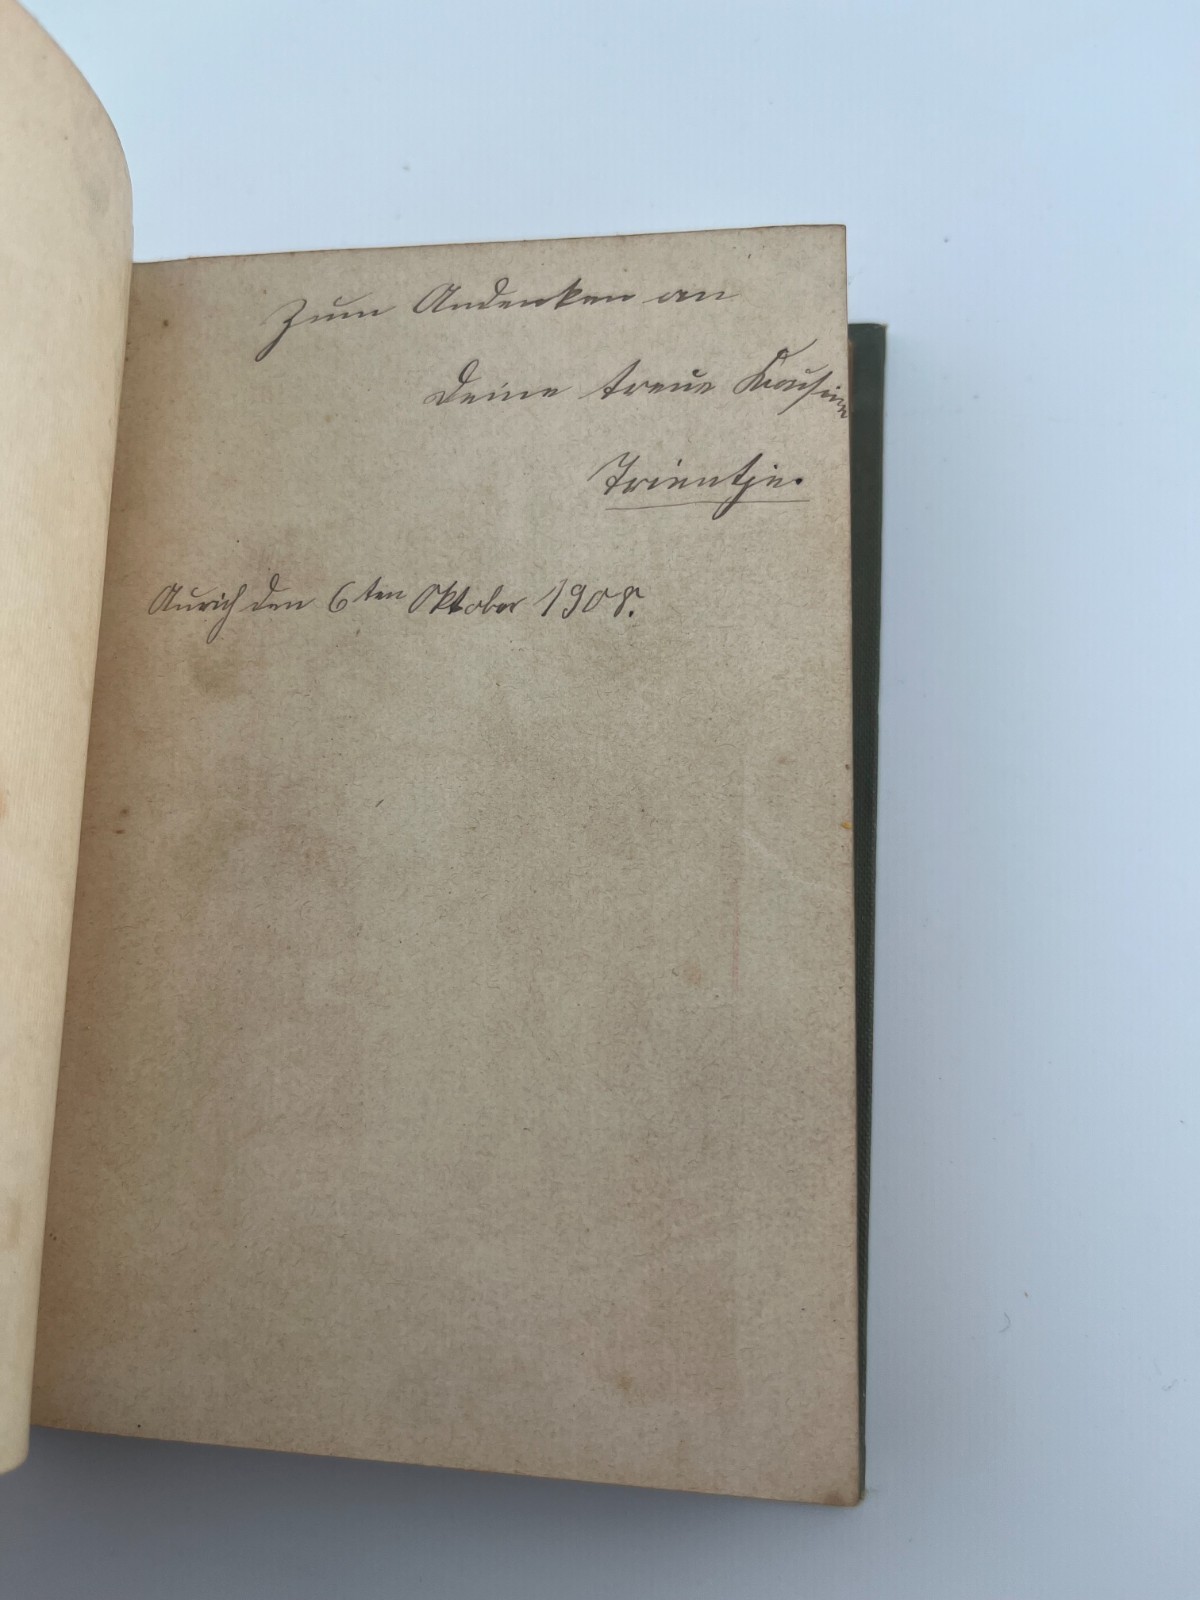 Zum Andenken an
Deine treue Kousine
Trientje.
Aurich den 6ten Oktober 1908.